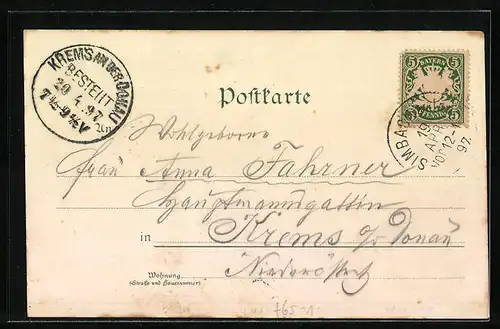 KREMS AN DER DONAU
BESTELLT
20 4 97
7½-9½V
Postkarte
BAYERN
5 5
PFENNIG
5 5
SIMBA
19
APR
VOR 12-
97
An
Wohlgeborne
Frau Anna Fahrner
Hauptmannsgattin
in Krems a/ Donau
Niederöstreich
Wohnung
(Straße und Hausnummer)
765-1